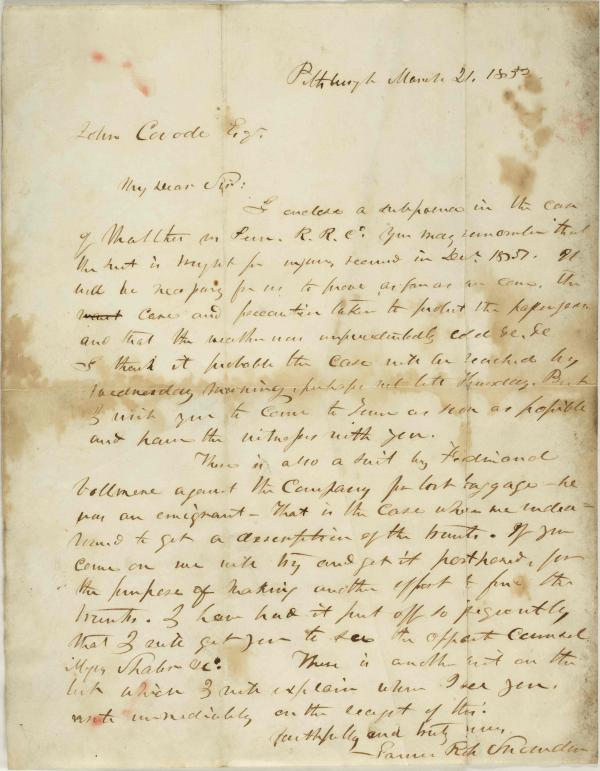 Pittsburgh March 21. 1853
John Covode Esqr.
My Dear Sir:
I enclose a subpoena in the case
of Walther vs Penn. R. R. Co. You may remember that
the suit is brought for injury received in Decr. 1851. It
will be necessary for us to prove as far as we can, the
want care and precaution taken to protect the passengers
and that the weather was unprecedentedly cold &c. &c
I think it probable the case will be reached by
Wednesday morning, perhaps not late Thursday. But
I wish you to come to as soon as possible
and have the witnesses with you.
There is also a suit by Ferdinand
Vollmere against the Company for lost baggage - he
was an emigrant - That is the case where we endea-
vored to get a description of the trunks. If you
come on we will try and get it postponed, for
the purpose of making another effort to find the
trunks. I have had it put off so frequently
that I will get you to see the opposite counsel.
Shaler &c. There is another suit on the
list which I will explain when I see you.
write immediately on the receipt of this.
faithfully and truly yours